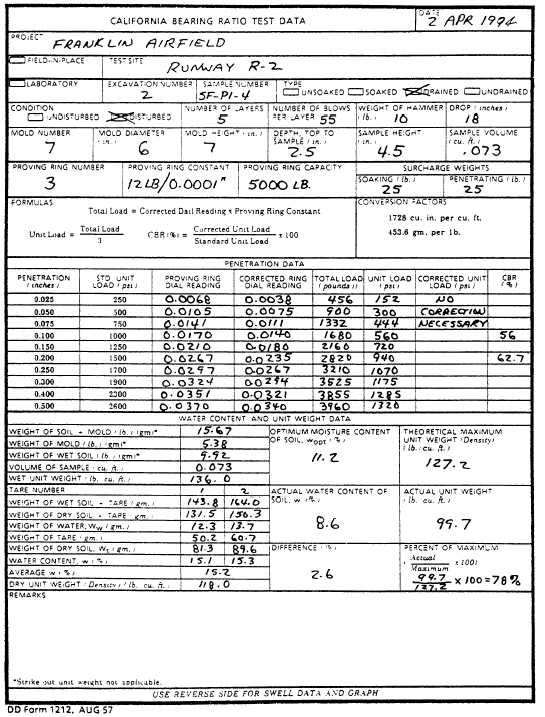 CALIFORNIA BEARING RATIO TEST DATA
DATE 2 APR 1994
PROJECT FRANKLIN AIRFIELD
FIELD-IN-PLACE TEST SITE RUNWAY R-2
LABORATORY EXCAVATION NUMBER 2 SAMPLE NUMBER SF-P1-4 TYPE UNSOAKED SOAKED DRAINED UNDRAINED
CONDITION UNDISTURBED DISTURBED NUMBER OF LAYERS 5 NUMBER OF BLOWS PER LAYER 55 WEIGHT OF HAMMER (lb.) 10 DROP (inches) 18
MOLD NUMBER 7 MOLD DIAMETER (in.) 6 MOLD HEIGHT (in.) 7 DEPTH, TOP TO SAMPLE (in.) 2.5 SAMPLE HEIGHT 4.5 SAMPLE VOLUME (cu. ft.) .073
PROVING RING NUMBER 3 PROVING RING CONSTANT 12LB/0.0001" PROVING RING CAPACITY 5000 LB. SURCHARGE WEIGHTS SOAKING (lb.) 25 PENETRATING (lb.) 25
FORMULAS
Total Load = Corrected Dail Reading x Proving Ring Constant
Unit Load = Total Load / 3 CBR (%) = Corrected Unit Load / Standard Unit Load x 100
CONVERSION FACTORS
1728 cu. in. per cu. ft.
453.6 gm. per lb.
PENETRATION DATA
PENETRATION (inches) STD. UNIT LOAD (psi) PROVING RING DIAL READING CORRECTED RING DIAL READING TOTAL LOAD (pounds) UNIT LOAD (psi) CORRECTED UNIT LOAD (psi) CBR (%)
0.025 250 0.0068 0.0038 456 152 NO
0.050 500 0.0105 0.0075 900 300 CORRECTION
0.075 750 0.0141 0.0111 1332 444 NECESSARY
0.100 1000 0.0170 0.0140 1680 560 56
0.150 1250 0.0210 0.0180 2160 720
0.200 1500 0.0267 0.0235 2820 940 62.7
0.250 1700 0.0297 0.0267 3210 1070
0.300 1900 0.0324 0.0294 3525 1175
0.400 2300 0.0351 0.0321 3855 1285
0.500 2600 0.0370 0.0340 3960 1320
WATER CONTENT AND UNIT WEIGHT DATA
WEIGHT OF SOIL + MOLD (lb.) (gm)* 15.67
WEIGHT OF MOLD (lb.) (gm)* 5.38
WEIGHT OF WET SOIL (lb.) (gm)* 9.92
VOLUME OF SAMPLE (cu. ft.) 0.073
WET UNIT WEIGHT (lb. cu. ft.) 136.0
OPTIMUM MOISTURE CONTENT OF SOIL, wOPT (%) 11.2
THEORETICAL MAXIMUM UNIT WEIGHT (Density) (lb. cu. ft.) 127.2
TARE NUMBER 1 2
WEIGHT OF WET SOIL + TARE (gm.) 143.8 164.0
WEIGHT OF DRY SOIL + TARE (gm.) 131.5 150.3
WEIGHT OF WATER, Ww (gm.) 12.3 13.7
WEIGHT OF TARE (gm.) 50.2 60.7
WEIGHT OF DRY SOIL, Ws (gm.) 81.3 89.6
WATER CONTENT, w (%) 15.1 15.3
AVERAGE w (%) 15.2
DRY UNIT WEIGHT (Density) (lb. cu. ft.) 118.0
ACTUAL WATER CONTENT OF SOIL, w (%) 8.6
ACTUAL UNIT WEIGHT (lb. cu. ft.) 99.7
DIFFERENCE (%) 2.6
PERCENT OF MAXIMUM (Actual / Maximum x 100) 99.7 / 127.2 x 100 = 78%
REMARKS
*Strike out unit weight not applicable.
USE REVERSE SIDE FOR SWELL DATA AND GRAPH
DD Form 1212, AUG 57